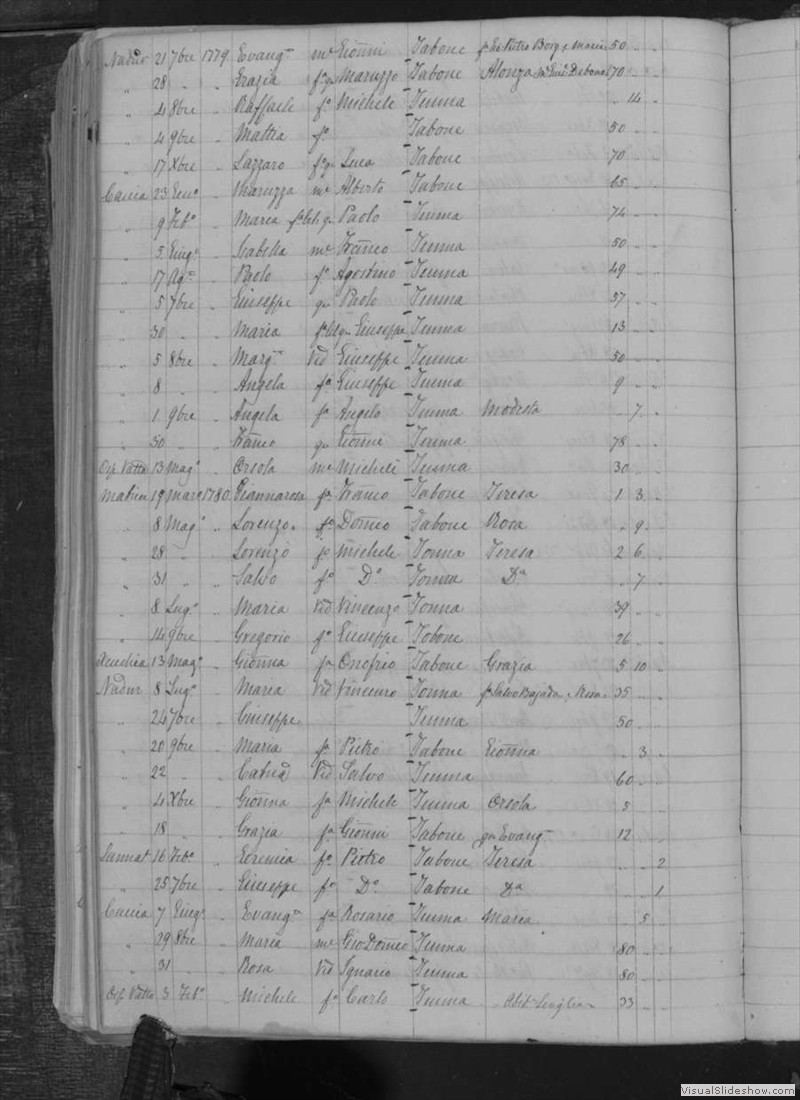 Nadur 21 7bre 1779 Evangta me Gionni Tabone fa Pietro Borg e Maria 50 " "
" 28 " " Grazia fa qm Maruzzo Tabone Alonza Debono 70 " "
" 4 8bre " Raffaele fo Michele Tumma " 14 "
" 4 9bre " Mattia fo Tabone 50 " "
" 17 Xbre " Lazzaro fo qm Luca Tabone 70 " "
Caccia 23 Geno " Maruzza me Alberto Tabone 65 " "
" 9 Febo " Maria qm Paolo Tumma 74 " "
" 5 Giugo " Isabella me Franco Tumma 50 " "
" 17 Ago " Paolo fo Agostino Tumma 49 " "
" 5 7bre " Giuseppe qm Paolo Tumma 57 " "
" 30 " " Maria Giuseppe Tumma 13 " "
" 5 8bre " Margta Vid Giuseppe Tumma 50 " "
" 8 " " Angela fa Giuseppe Tumma 9 " "
" 1 9bre " Angela fa Angelo Tumma Modesta " 7 "
" 30 " " Franco qm Gionni Tumma 78 " "
Osp Vatta 13 Mago " Orsola me Michele Tumma 30 " "
Mabien 19 Marzo 1780 Giannarosa fa Franco Tabone Teresa 1 3 "
" 8 Mago " Lorenzo fo Domco Tabone Rosa " 9 "
" 28 " " Lorenzo fo Michele Tonna Teresa 2 6 "
" 31 " " Salvo fo Do Tonna Da " 7 "
" 8 Lugo " Maria Vid Vincenzo Tonna 39 " "
" 14 9bre " Gregorio fo Giuseppe Tobone 26 " "
Xeuchia 13 Mago " Gionna fa Onofrio Tabone Grazia 5 10 "
Nadur 8 Lugo " Maria Vid Vincenzo Tonna fa Salvo Bajada e Rosa 35 " "
" 24 7bre " Giuseppe Tumma 50 " "
" 20 9bre " Maria fa Pietro Tabone Gionna " 3 "
" 22 " " Catna Vid Salvo Tumma 60 " "
" 4 Xbre " Gionna fa Michele Tumma Orsola 5 " "
" 18 " " Grazia fa Gionni Tabone qm Evangta 12 " "
Sannat 16 Febo " Geremia fo Pietro Tabone Teresa " " 2
" 25 7bre " Giuseppe fo Do Tabone Da " " 1
Caccia 7 Giugo " Evangta fa Rosario Tumma Maria " 5 "
" 29 8bre " Maria me Gio Domco Tumma 80 " "
" 31 " " Rosa Vid Ignazio Tumma 80 " "
Osp Vatta 3 Febo " Michele fo Carlo Tumma Abit Senglea 33 " "
VisualSlideshow.com